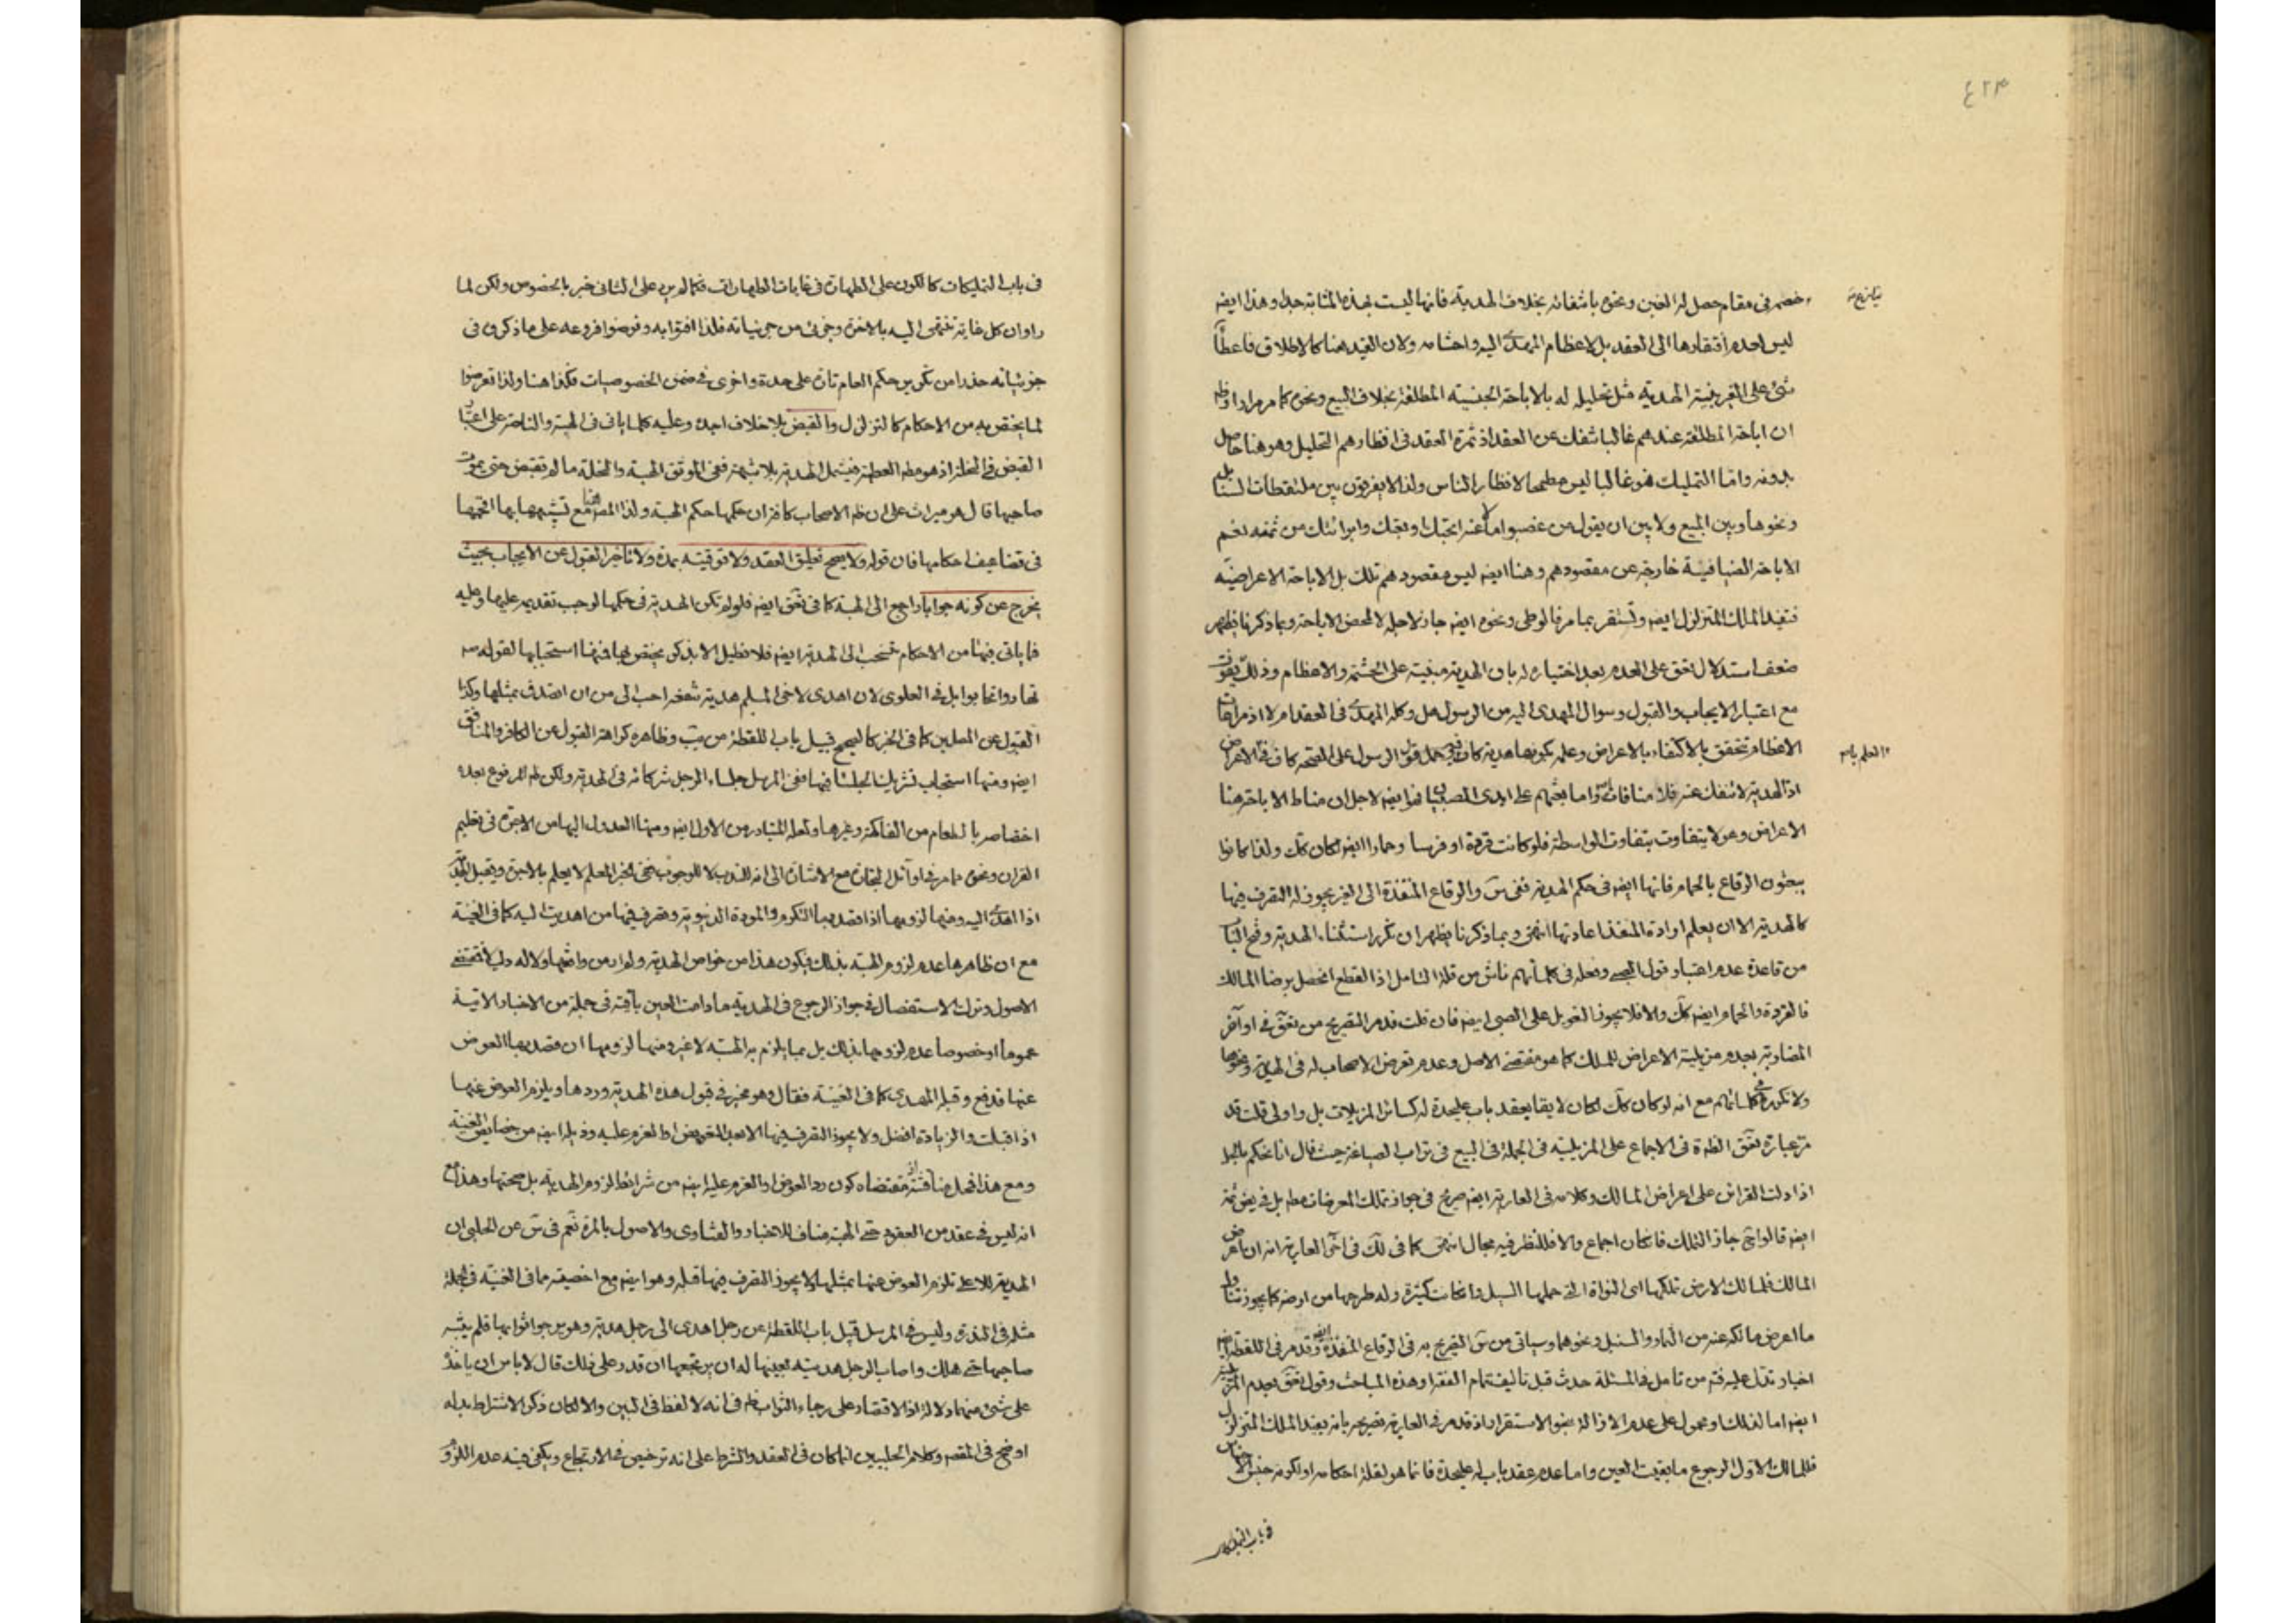 ٤٢٣
خصم فى مقام حصل له الغبن ونحوه باشفائه بخلاف الهدية فانها ليست بهذه المثابة جدا وهذا ايضه
ليس لعدم افتقارها الى العقد بل لاعظام المهدى اليه واحتشامه ولان القيد هنا كالاطلاق فاعطاء
شئ على الغير بنية الهدية مثل تحليله له بالاباحة الجنسية المطلقة بخلاف البيع ونحوه كما مر مرارا
ان اباحة المطلقة عندهم غالبا تنفك عن العقد اذ ثمرة العقد فى انظارهم التحليل وهو هنا حاصل
بدونه واما التمليك فهو غالبا ليس مطمحا لانظار الناس ولذا لا يفرقون بين ملتقطات السنابل
ونحوها وبين المبيع ولا بين ان يقول من غصبوا مالا عنه ابحتك او بعتك وابرائك من ثمنه نعم
الاباحة الضيافية خارجة عن مقصودهم وهنا ايضه ليس مقصودهم تلك بل الاباحة الاعراضية
فتفيد الملك المتزلزل ايضه وتستقر بما مر فالوطى ونحوه ايضه جاز لاجله لا لمحض الاباحة وبما ذكرنا يظهر
ضعف استدلال لفق على العدم بعد اختياره له بان الهدية مبنية على الحشمة والاعظام وذلك يفوت
مع اعتبار الايجاب والقبول وسوال المهدى اليه من الرسول هل وكله المهدى فى العقد ام لا اذ مراعات
الاعظام تتحقق بالاكتفاء بالاعراض وعلمه بكونها هدية كاف فيه حمل قول الرسول على الصحة كاف فى الاعراض
والعلم بانه
اذ الهدية لا تنفك عنه فلا منافاة واما بعثهم على ايدى الصبيان فهو ايضه لاجل ان مناط الاباحة هنا
الاعراض وهو لا يتفاوت بتفاوت الواسطة فلو كانت قردة او فرسا وحمارا ايضه لكان كك ولذا كانوا
يبعثون الرقاع بالحمام فانها ايضه فى حكم الهدية ففى س والرقاع المنفذة الى الغير يجوز له التصرف فيها
كالهدية الا ان يعلم ارادة المنفذ اعادتها انتهى وبما ذكرنا يظهر ان تكرر استثناء الهدية وفتح الباب
من قاعدة عدم اعتبار قول الصبى وفعله فى كلماتهم ناش من قلة التامل اذ القطع ان حصل برضا المالك
فالقردة والحمام ايضه كك والا فلا يجوز التعويل على الصبى ايضه فان قلت قد مر التصريح من لفق فى اواخر
المضاربة بعدم مزيلية الاعراض للملك كما هو مقتضى الاصل وعدم تعرض الاصحاب له فى الهدية ونحوها
ولا تكرر فى كلماتهم مع انه لو كان كك لكان لايقا بعقد باب عليحدة له كسائر المزيلات بل واولى قلت قد
مر عبارة لفق الظهرة فى الاجماع على المزيلية فى الجملة فى البيع فى تراب الصياغة حيث قال انا نحكم بالملك
اذا دلت القرائن على اعراض المالك وكلامه فى العارية ايضه صريح فى جواز تملك المعرضات
ايضه قالوا جاز التملك فانكان اجماع والا فللنظر فيه مجال انتهى كما فى لك فى اخر العارية انه ان اعرض
المالك فلمالك الارض تملكها اى النواة التى حملها السيل وانكانت كثيرة وله طرحها من ارضه كما يجوز تناول
ما اعرض مالكه عنه من الثمار والسنبل ونحوهما وسياتى من س التصريح به فى الرقاع المنفذة وقد مر فى اللقطة ايضه
اخبار تدل عليه فتم من تامل فالمسئلة حدث قبل تاليف تمام الفقه او هذه المباحث وقول لفق بعدم
ايضه اما لذلك او محمول على عدم الازالة بنحو الاستقرار اذ قد مر فى العارية تصريحه بانه يفيد الملك المتزلزل
فللمالك الاول الرجوع ما بقيت العين واما عدم عقد باب له عليحدة فانما هو لقلة احكامه او لكونه جنس الاجناس
فى باب التمليكات
فى باب التمليكات كالكون على الطهارة فى غايات الطهارات فكما لم يرد على الثانى خبر بالخصوص ولكن لما
راوا ان كل غاية تنتهى اليه بالاخرة وجزئى من جزئياته فلذا افتوا به وفرضوا فروعه على ما ذكروه فى
جزئياته حذرا من تكرير حكم العام تارة على حدة واخرى فى ضمن الخصوصيات فكذا هنا ولذا تعرضوا
لما يختص به من الاحكام كالتزلزل والقبض بلا خلاف اجده وعليه كلما ياتى فى الهبة والناصة على اعتبار
القبض فى النحلة اذ هو مطه العطية فيشمل الهدية بلا شبهة ففى الموثق الهبة والنحلة ما لم تقبض حتى يموت
صاحبها قال هو ميراث على ان ظه الاصحاب كافة ان حكمها حكم الهبة ولذا المصه هنا مع تشبيهها بها اقحمها
فى تضاعيف احكامها فان قوله ولا يصح تعليق العقد ولا توقيته بمدة ولا تاخير القبول عن الايجاب بحيث
يخرج عن كونه جوابا راجع الى الهبة كما فى لفق ايضه فلو لم تكن الهدية فى حكمها لوجب تقديمه عليها وعليه
فما ياتى فيها من الاحكام تنسحب الى الهدية ايضه فلا نطيل الا بذكر ما يختص بها فمنها استحبابها لقوله صه
تهادوا تحابوا بل فى العلوى لان اهدى لاخى المسلم هدية تنفعه احب الى من ان اتصدق بمثلها وكذا
القبول من المسلمين كما فى الخبر كالصحيح قبيل باب اللقطة من يب وظاهره كراهة القبول عن الكافر والمنافق
ايضه ومنها استحباب تشريك الجلساء فيها ففى المرسل جلساء الرجل شركائه فى الهدية ولكن ظه المرفوع بعده
اختصاصه بالطعام من الفاكهة وغيرها ولعله المتبادر من الاول ايضه ومنها العدول اليها من الاجرة فى تعليم
القران ونحوه مما مر فى اوائل التجارة مع الاشارة الى انه للندب لا للوجوب ففى الخبر المعلم لا يعلم بالاجر ويقبل الهدية
اذا اهدى اليه ومنها لزومها اذا قصد بها التكرم والمودة الدنيوية وتصرف فيها من اهديت اليه كما فى الغنية
مع ان ظاهرها عدم لزوم الهبة بذلك فيكون هذا من خواص الهدية ولم ار من وافقها ولا له دليل فمقتضى
الاصول وترك الاستفصال فى جواز الرجوع فى الهدية ما دامت العين باقية فى جملة من الاخبار الاتية
عموما او خصوصا عدم لزومها بذلك بل بما يلزم به الهبة لا غير ومنها لزومها ان قصد بها العوض
عنها فدفع وقبله المهدى كما فى الغنية فقال وهو مخير فى قبول هذه الهدية وردها ويلزم العوض عنها
اذا قبلت والزيادة افضل ولا يجوز التصرف فيها الا بعد التعويض او العزم عليه وذيله ايضه من خصايص الغنية
ومع هذا فمحل مناقشة اذ مقتضاه كون رد العوض او العزم عليه ايضه من شرائط لزوم الهدية بل صحتها وهذا مع
انه ليس فى عقد من العقود حتى الهبة مناف للاخبار والفتاوى والاصول بالمرة نعم فى س عن الحلبى ان
الهدية للاعلى تلزم العوض عنها بمثلها ولا يجوز التصرف فيها قبله وهو ايضه مع اخصيته مما فى الغنية فى الجملة
مثله فى الندرة وليس فى المرسل قبيل باب اللقطة عن رجل اهدى الى رجل هدية وهو يرجو ثوابها فلم يثبه
صاحبها حتى هلك واصاب الرجل هديته بعينها له ان يرتجعها ان قدر على ذلك قال لا باس ان ياخذه
على شئ منها دلالة اذ الاقتصار على رجاء الثواب ظه فى انه لا لفظ فى البين والا لكان ذكر الاشتراط بدله
اوضح فى المقصه وكلام الحلبيين انما كان فى العقد والشرط على انه ترخيص فى الارتجاع ويكفى فيه عدم اللزوم